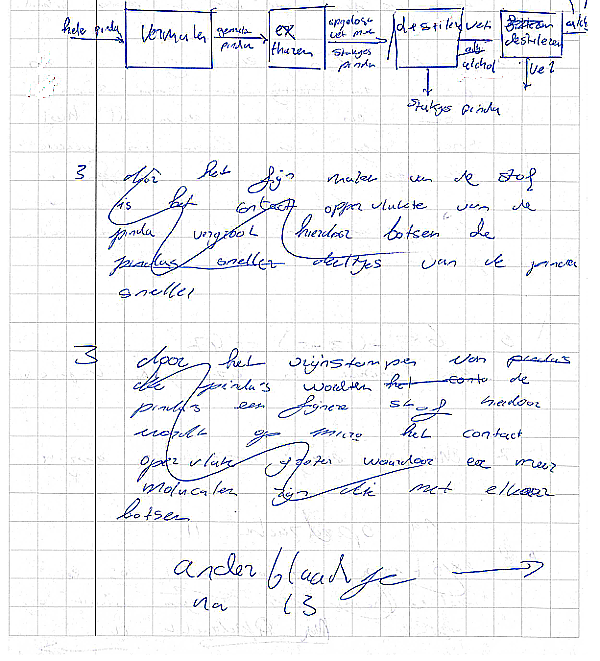 hele pinda vermalen gemale pinda ex traheren opgeloste vet stukjes pinda destileren vet alchol destileren vet
stukjes pinda
3 door het fijn malen van de stof
is het contact opper vlakte van de
pinda vergroot hierdoor botsen de
pindas sneller deeltjes van de pinda
sneller
3 door het vijnstampen van pindas
die pinda's worden het conta de
pinda's een fijnere stof hierdoor
wordt op micro het contact
oper vlakte groter waardoor er meer
moluculen zijn die met elkaar
botsen
ander blaadje
na 13